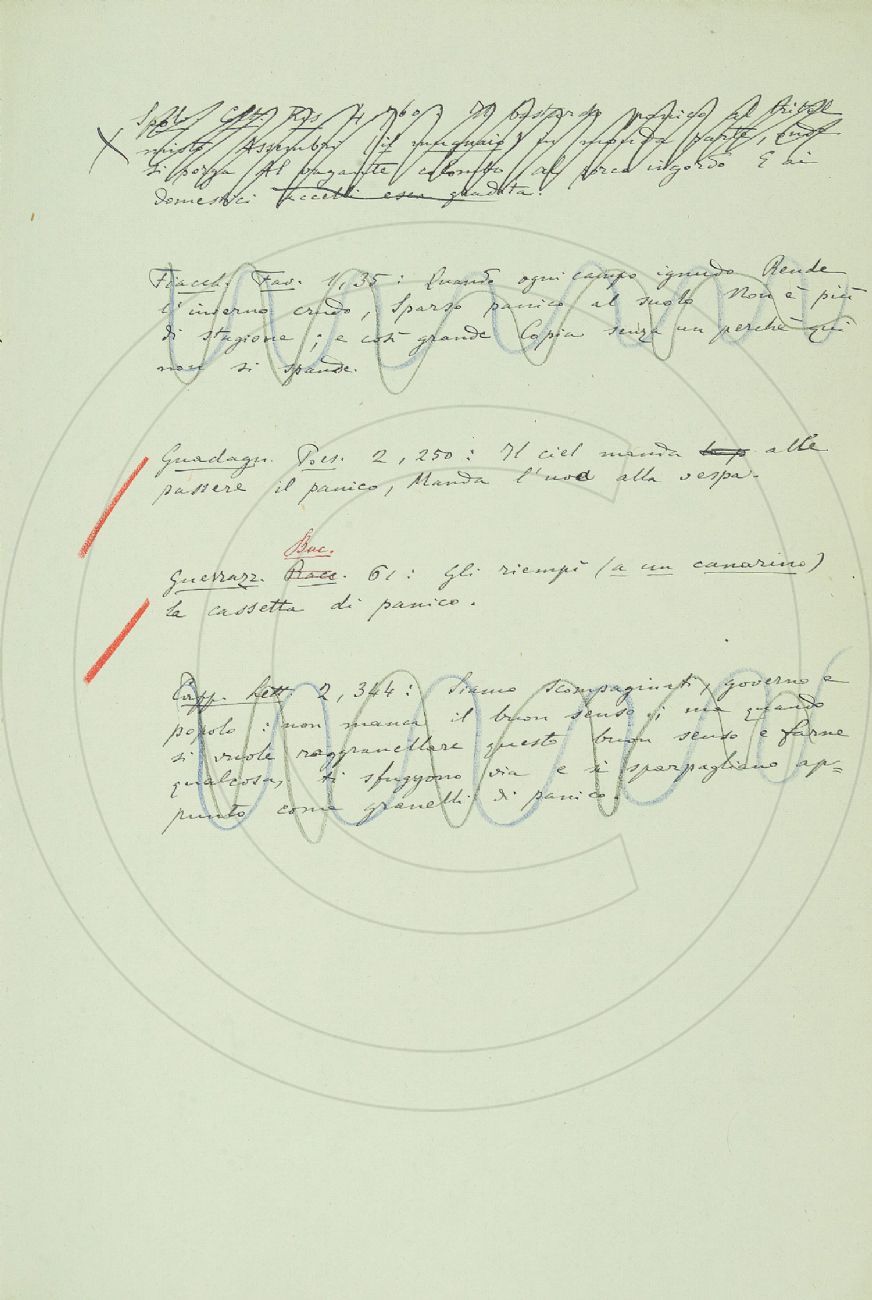 Spolv. Colt. Ris. 4, 760: Di bastardo panico al tritol
misto Assembri (il mugnaio) in monda parte, onde
si porga Al vagante colombo, al porco ingordo E ai
domestici uccelli esca gradita.
Fiacch. Fav. 1, 35: Quando ogni campo ignudo Rende
l'inverno crudo, Sparso panico al suolo Non è più
di stagione; e così grande Copia senza un perchè qui
non si spande.
Guadagn. Poes. 2, 250: Il ciel manda alle
passere il panico, Manda l'uva alla vespa.
Buc.
Guerrazz. 61: Gli riempì (a un canarino)
la cassetta di panico.
Capp. Lett. 2, 344: Siamo scompaginati, governo e
popolo: non manca il buon senso; ma quando
si vuole raggranellare questo buon senso e farne
qualcosa, ti sfuggono via e si sparpagliano ap=
punto come granelli di panico.